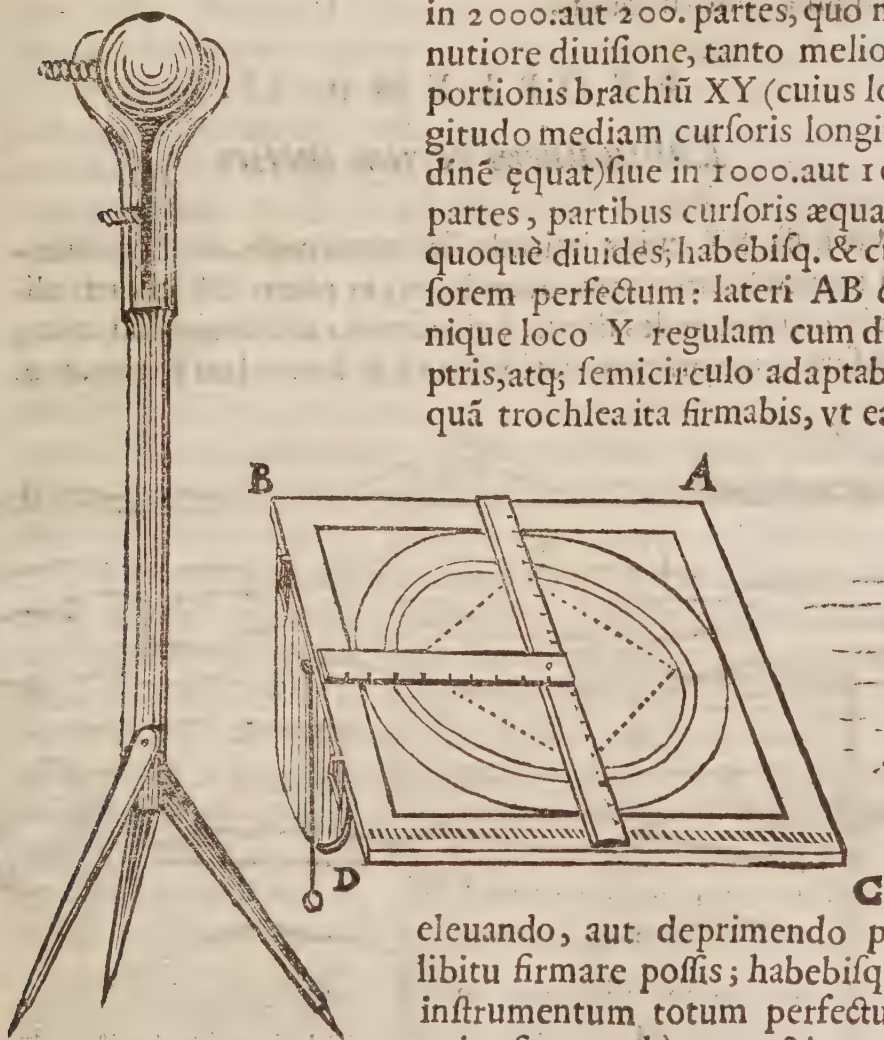 in 2000. aut 200. partes, quo m
nutiore diuiſione, tanto melio
portionis brachiũ XY (cuius lo
gitudo mediam curſoris longi
dinẽ ęquat) ſiue in 1000. aut 10
partes, partibus curſoris æqua
quoquè diuides, habebiſq. & c
ſorem perfectum: lateri AB
nique loco Y regulam cum d
ptris, atq; ſemicirculo adaptab
quã trochlea ita firmabis, vt ea
B
A
D
C
eleuando, aut deprimendo p
libitu firmare poſſis; habebiſq
inſtrumentum totum perfectu